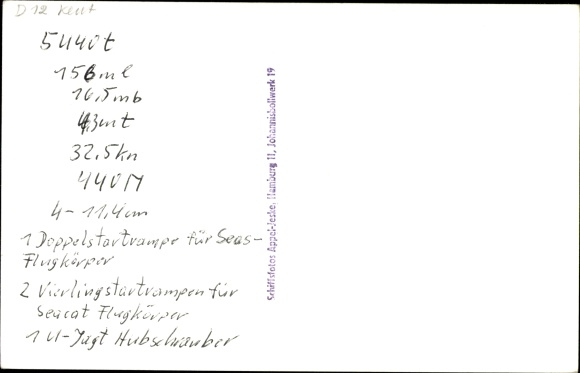 D 12 Kent
5440t
156m l
16,5m b
4,3m t
32.5kn
440M
4 - 11,4cm
1 Doppelstartrampe für Seas-
Flugkörper
2 Vierlingstartrampen für
Seacat Flugkörper
1 U-Jagt Hubschrauber
Schiffsfotos Appel-Jeske, Hamburg 11, Johannisbollwerk 19